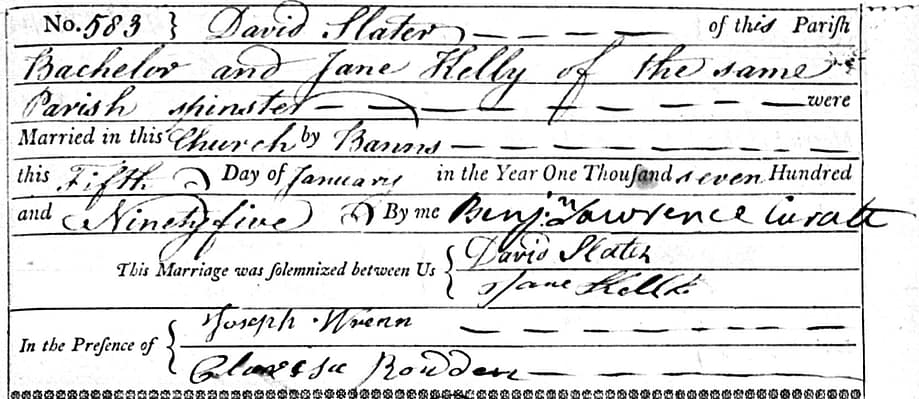 No. 583 } David Slater — — — — of this Parish
Bachelor and Jane Kelly of the same
Parish spinster — — — — — — — were
Married in this Church by Banns — — — — — — —
this Fifth Day of January in the Year One Thousand seven Hundred
and Ninety five By me Benj.n Lawrence Curate
This Marriage was solemnized between Us { David Slater
Jane Kelly
In the Presence of { Joseph Wrenn — — — — — —
Clarissa Rowden —